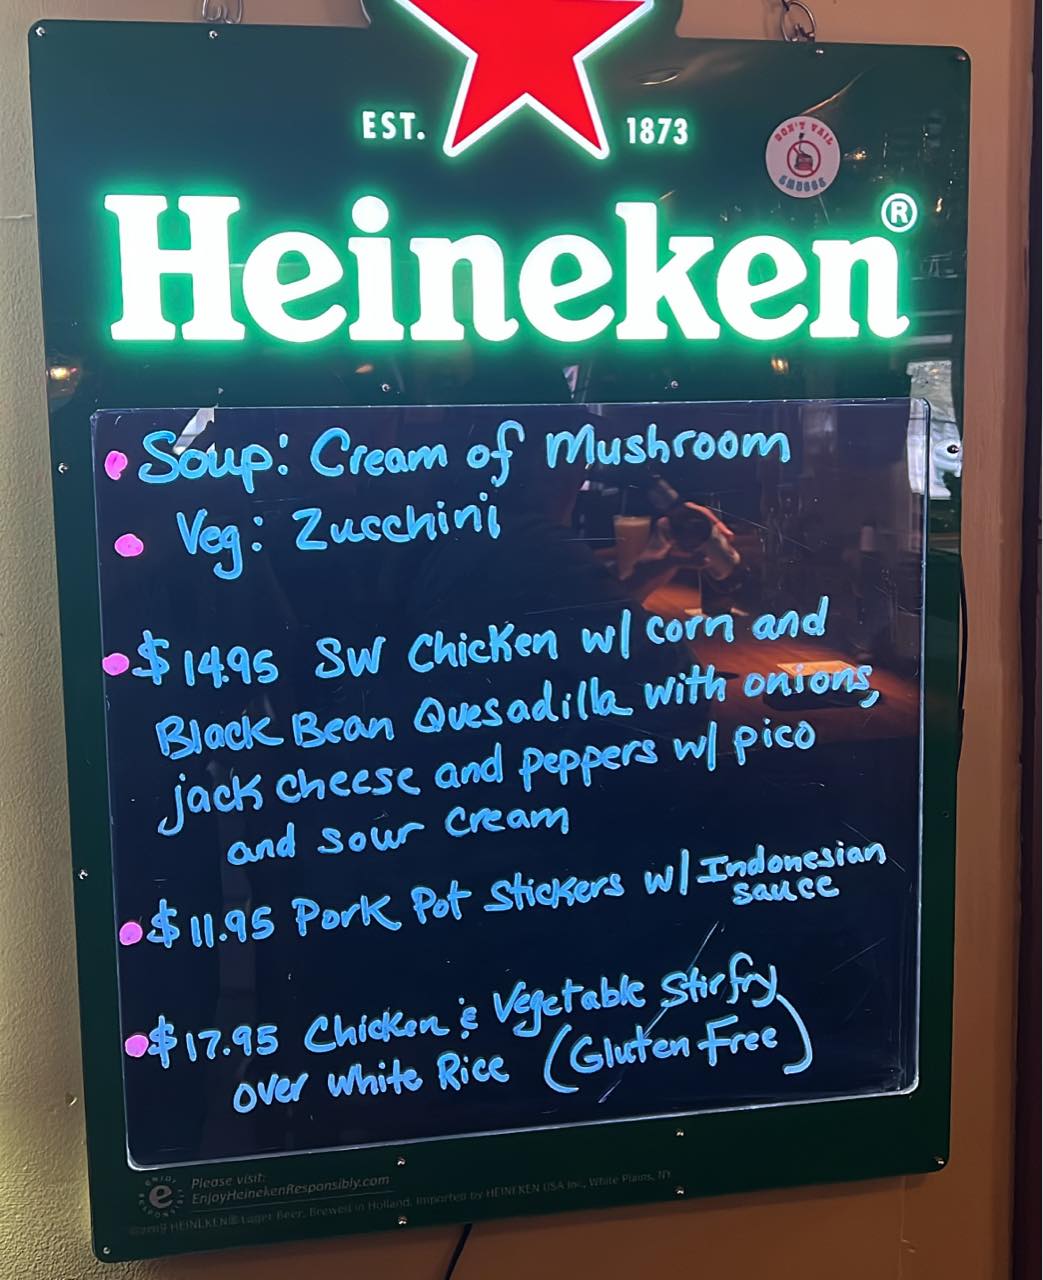 EST. 1873
DON'T YAIL
SMUGGS
Heineken®
Soup: Cream of Mushroom
Veg: Zucchini
$14.95 SW Chicken w/ corn and
Black Bean Quesadilla with onions,
jack cheese and peppers w/ pico
and sour cream
$11.95 Pork Pot Stickers w/ Indonesian
sauce
$17.95 Chicken & Vegetable Stirfry
over white Rice (Gluten Free)
ENJOY
e
RESPONSIBLY
Please visit:
EnjoyHeinekenResponsibly.com
©2019 HEINEKEN® Lager Beer. Brewed in Holland. Imported by HEINEKEN USA Inc., White Plains, NY